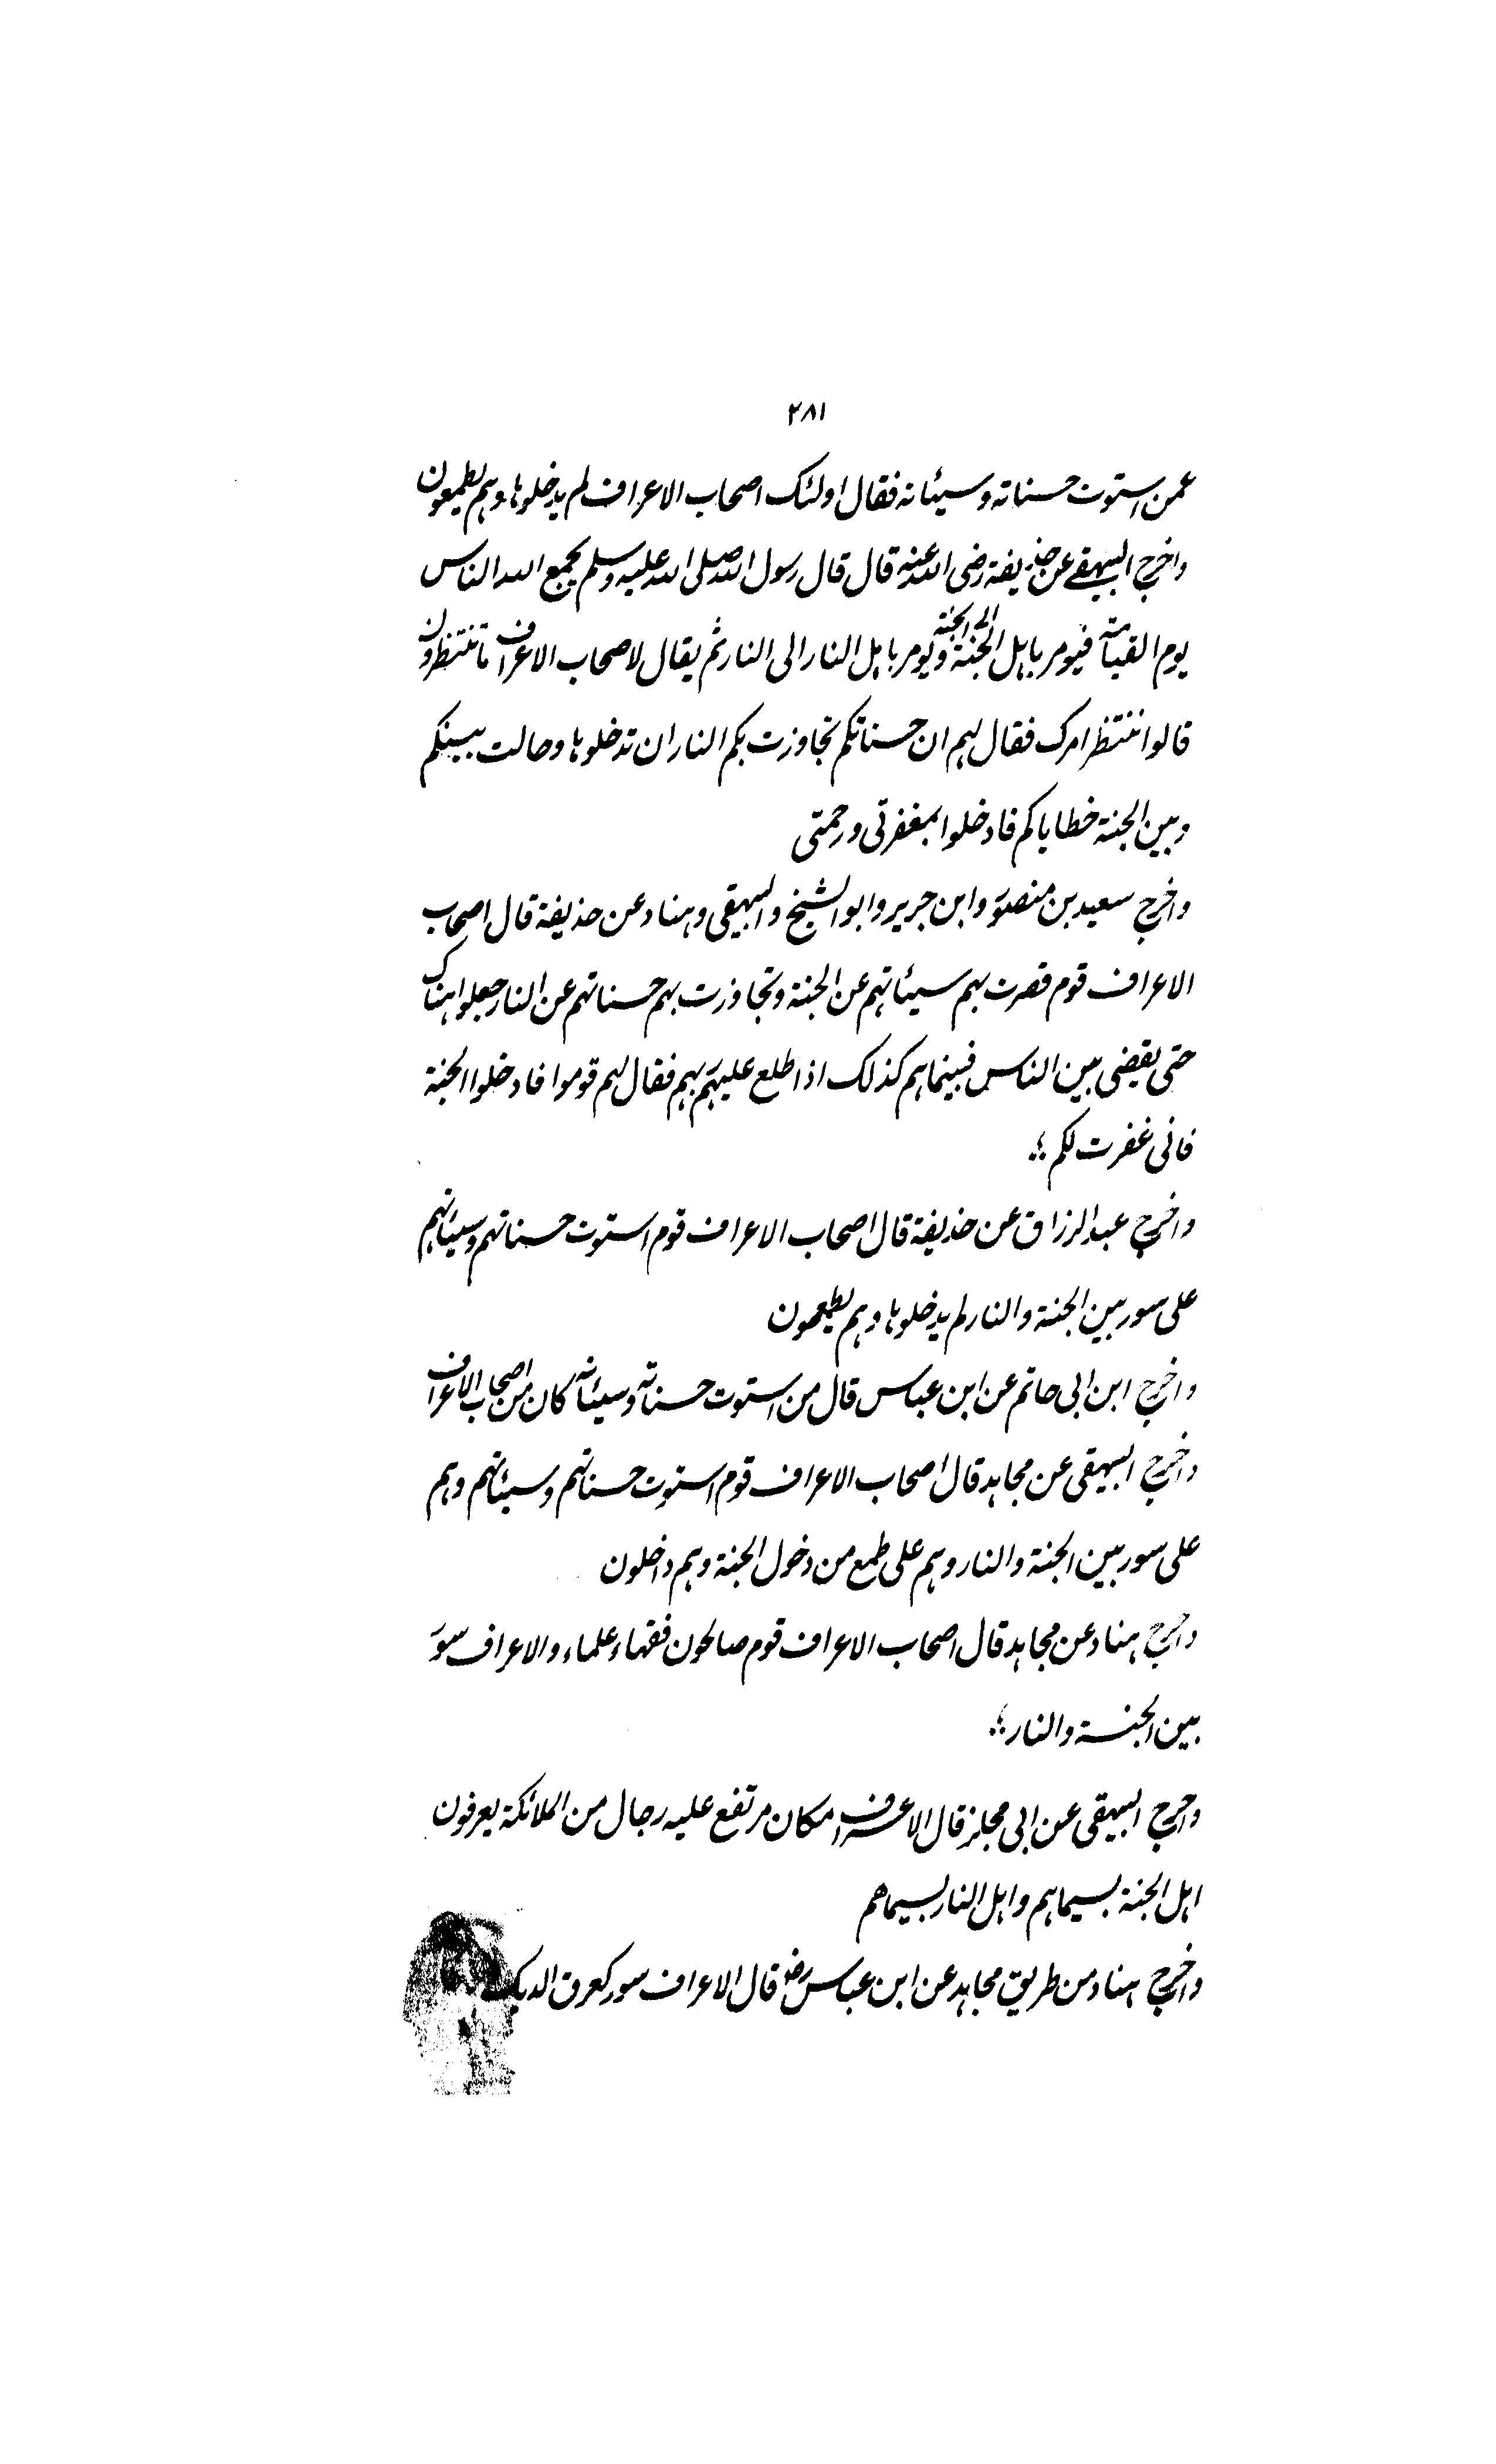 ٢٨١
عمن استوت حسناته وسيئاته فقال اولئك اصحاب الاعراف لم يدخلوها وهم يطمعون
واخرج البيهقے عن حذيفة رضی الله عنه قال قال رسول الله صلی الله عليه وسلم يجمع الله الناس
يوم القيامة فيومر باهل الجنة الی الجنة ويومر باهل النار الی النار ثم يقال لاصحاب الاعراف ما تنتظرون
قالوا ننتظر امرك فقال لهم ان حسناتكم تجاوزت بكم النار ان تدخلوها وحالت بينكم
وبين الجنة خطاياكم فادخلوا بمغفرتی ورحمتی
واخرج سعيد بن منصور وابن جرير وابو الشيخ والبيهقی وهناد عن حذيفة قال اصحاب
الاعراف قوم قصرت بهم سيئاتهم عن الجنة وتجاوزت بهم حسناتهم عن النار جعلوا هناك
حتی يقضی بين الناس فبينما هم كذلك اذ اطلع عليهم ربهم فقال لهم قوموا فادخلوا الجنة
فانی غفرت لكم
واخرج عبد الرزاق عن حذيفة قال اصحاب الاعراف قوم استوت حسناتهم وسيئاتهم
علی سور بين الجنة والنار لم يدخلوها وهم يطمعون
واخرج ابن ابی حاتم عن ابن عباس قال من استوت حسناته وسيئاته كان من اصحاب الاعراف
واخرج البيهقی عن مجاهد قال اصحاب الاعراف قوم استوت حسناتهم وسيئاتهم وهم
علی سور بين الجنة والنار وهم علی طمع من دخول الجنة وهم داخلون
واخرج هناد عن مجاهد قال اصحاب الاعراف قوم صالحون فقهاء علماء والاعراف سور
بين الجنة والنار
واخرج البيهقی عن ابی مجلز قال الاعراف مكان مرتفع عليه رجال من الملائكة يعرفون
اهل الجنة بسيماهم واهل النار بسيماهم
واخرج هناد من طريق مجاهد عن ابن عباس رض قال الاعراف سور كعرف الديك